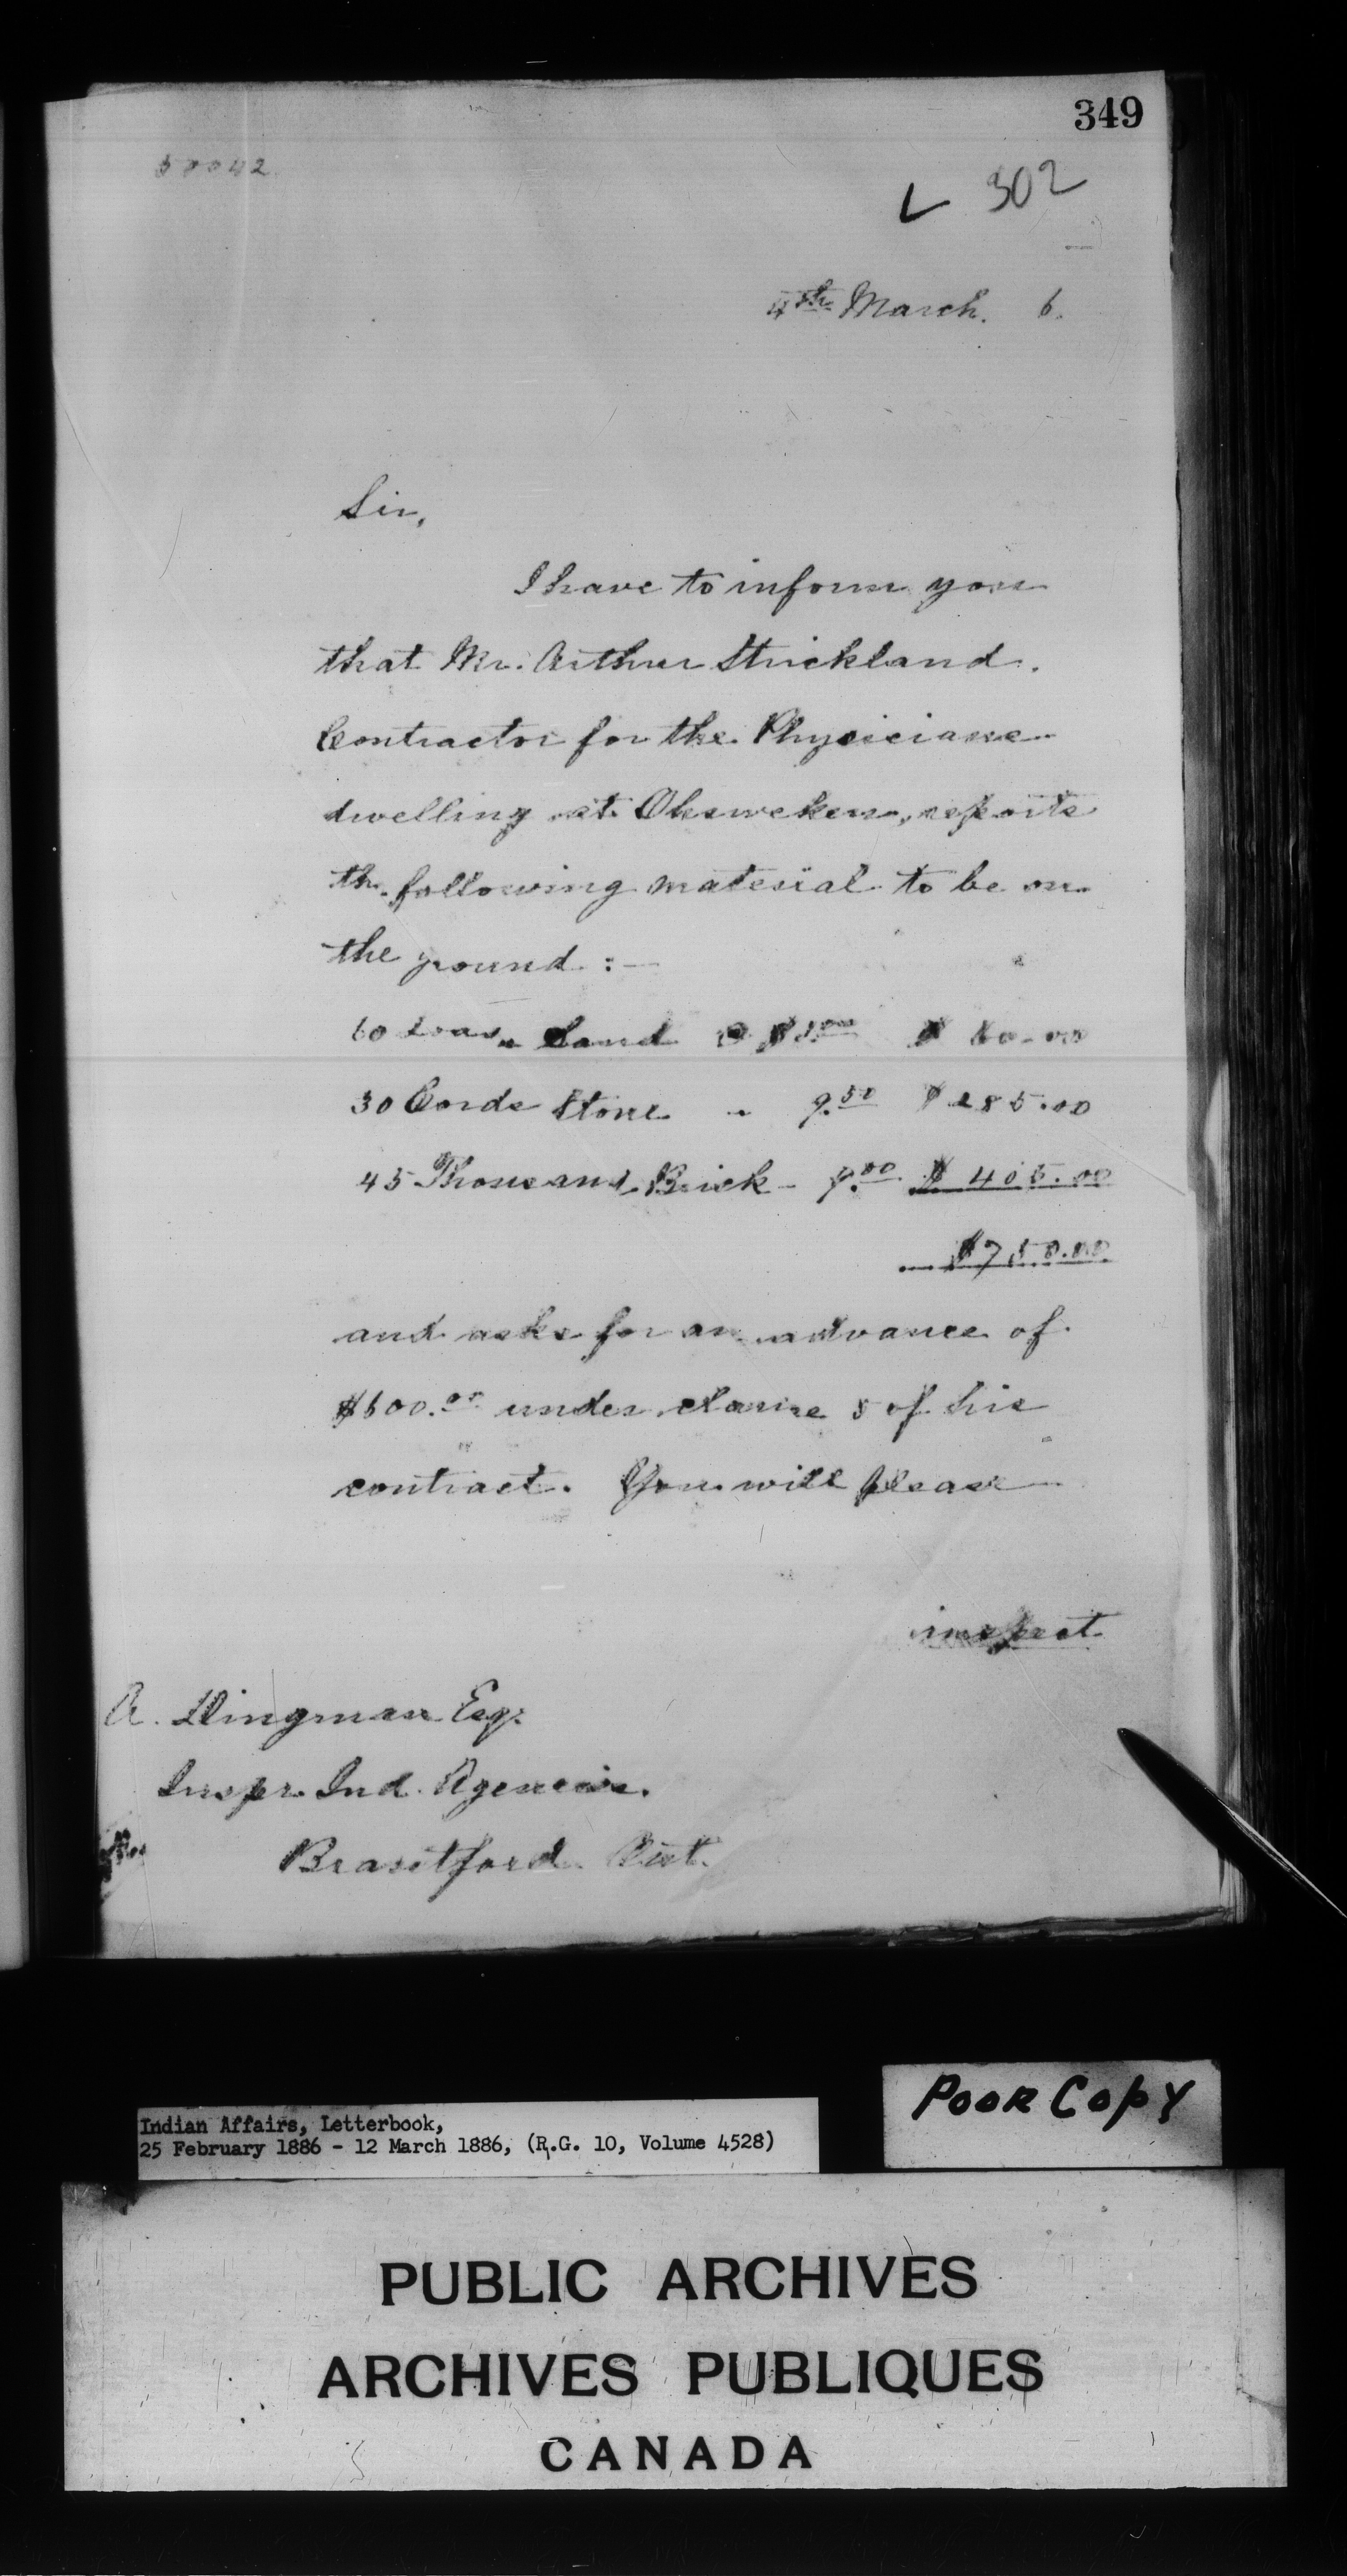 349
50042
L 302
4th March. 6.
Sir,
I have to inform you
that Mr. Arthur Strickland.
Contractor for the Physicians
dwelling at Ohsweken, reports
the following material to be on
the ground :—
60 Loads Sand @ $1.00 $ 60.00
30 Cords Stone " 9.50 $ 285.00
45 Thousand Brick - 9.00 $ 405.00
$750.00
and asks for an advance of
$600.00 under clause 5 of his
contract. You will please
inspect
A. Dingman Esq.
Inspr. Ind. Agencies.
Brantford. Ont.
Indian Affairs, Letterbook,
25 February 1886 - 12 March 1886, (R.G. 10, Volume 4528)
POOR COPY
PUBLIC ARCHIVES
ARCHIVES PUBLIQUES
CANADA